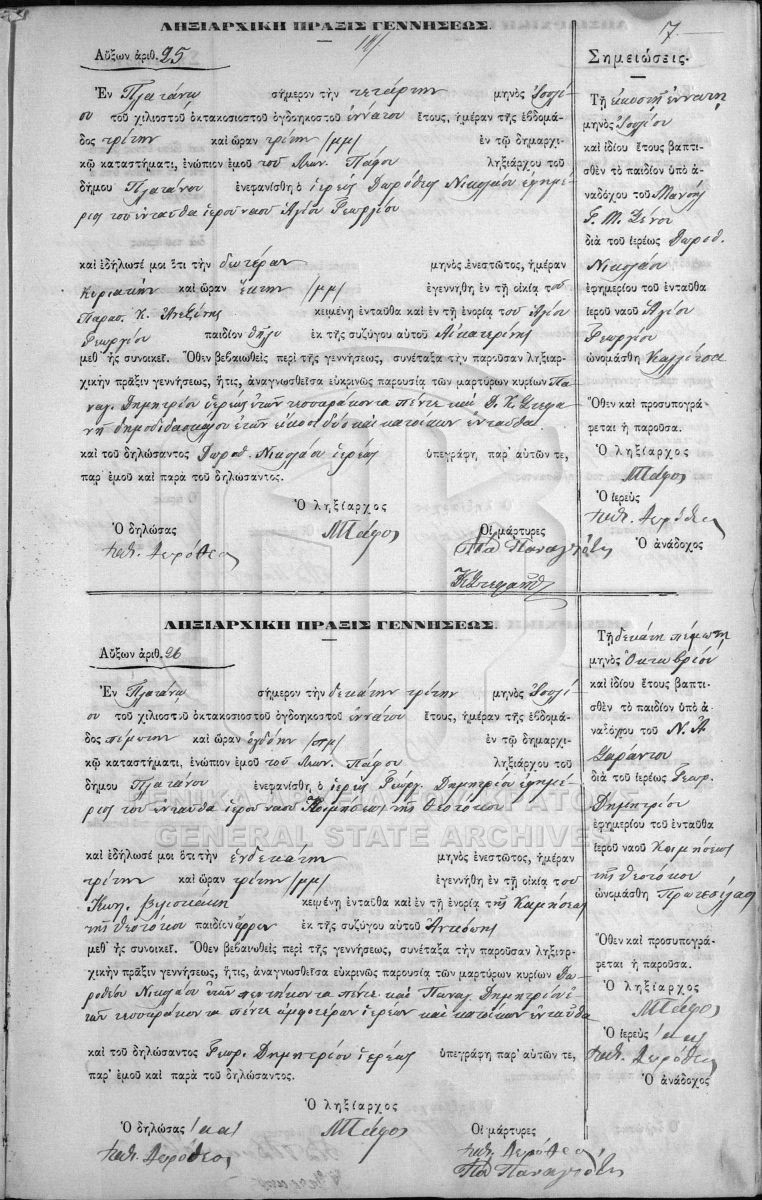 7
ΛΗΞΙΑΡΧΙΚΗ ΠΡΑΞΙΣ ΓΕΝΝΗΣΕΩΣ
Αὔξων ἀριθ. 25
Ἐν Πλατάνῳ σήμερον τὴν τετάρτην μηνὸς Ἰουλί
ου τοῦ χιλιοστοῦ ὀκτακοσιοστοῦ ὀγδοηκοστοῦ ἐννάτου ἔτους, ἡμέραν τῆς ἑβδομά-
δος τρίτην καὶ ὥραν τρίτην /μμ/ ἐν τῷ δημαρχι-
κῷ καταστήματι, ἐνώπιον ἐμοῦ τοῦ Πάφου ληξιάρχου τοῦ
δήμου Πλατάνου ἐνεφανίσθη ὁ ἱερεὺς Δωρόθεος Νικολάου ἐφημέ
ριος τοῦ ἐνταῦθα ἱεροῦ ναοῦ Ἁγίου Γεωργίου
καὶ ἐδήλωσέ μοι ὅτι τὴν δευτέραν μηνὸς ἐνεστῶτος, ἡμέραν
Κυριακὴν καὶ ὥραν ἕκτην /μμ/ ἐγεννήθη ἐν τῇ οἰκίᾳ του
Παρασ. Κ. κειμένῃ ἐνταῦθα καὶ ἐν τῇ ἐνορίᾳ τοῦ Ἁγίου
Γεωργίου παιδίον θῆλυ ἐκ τῆς συζύγου αὐτοῦ Αἰκατερίνης
μεθ' ἧς συνοικεῖ. Ὅθεν βεβαιωθεὶς περὶ τῆς γεννήσεως, συνέταξα τὴν παροῦσαν ληξιαρ-
χικὴν πρᾶξιν γεννήσεως, ἥτις, ἀναγνωσθεῖσα εὐκρινῶς παρουσίᾳ τῶν μαρτύρων κυρίων Πα
ναγ. Δημητρίου ἱερέως ἐτῶν τεσσαράκοντα πέντε καὶ Στεφα
νῆ δημοδιδασκάλου ἐτῶν εἴκοσι δύο καὶ κατοίκων ἐνταῦθα
καὶ τοῦ δηλώσαντος Δωροθ. Νικολάου ἱερέως ὑπεγράφη παρ' αὐτῶν τε,
παρ' ἐμοῦ καὶ παρὰ τοῦ δηλώσαντος.
Ὁ ληξίαρχος
Ὁ δηλώσας ΜΠάφος Οἱ μάρτυρες
παπ. Δωρόθεος Παπᾶ Παναγιώτης
Σημειώσεις.
Τῇ εἰκοστῇ ἐννάτῃ
μηνὸς Ἰουλίου
καὶ ἰδίου ἔτους βαπτι-
σθὲν τὸ παιδίον ὑπὸ ἀ-
ναδόχου τοῦ Μανόλ
Γ. Μ. Ξένου
διὰ τοῦ ἱερέως Δωροθ.
Νικολάου
ἐφημερίου τοῦ ἐνταῦθα
ἱεροῦ ναοῦ Ἁγίου
Γεωργίου
ὠνομάσθη Καλλίτσα
Ὅθεν καὶ προσυπογρά-
φεται ἡ παροῦσα.
Ὁ ληξίαρχος
ΜΠάφος
Ὁ ἱερεὺς
παπ. Δωρόθεος
Ὁ ἀνάδοχος
ΛΗΞΙΑΡΧΙΚΗ ΠΡΑΞΙΣ ΓΕΝΝΗΣΕΩΣ
Αὔξων ἀριθ. 26
Ἐν Πλατάνῳ σήμερον τὴν δεκάτην τρίτην μηνὸς Ἰουλί
ου τοῦ χιλιοστοῦ ὀκτακοσιοστοῦ ὀγδοηκοστοῦ ἐννάτου ἔτους, ἡμέραν τῆς ἑβδομά-
δος πέμπτην καὶ ὥραν ὀγδόην /πμ/ ἐν τῷ δημαρχι-
κῷ καταστήματι, ἐνώπιον ἐμοῦ τοῦ Πάφου ληξιάρχου τοῦ
δήμου Πλατάνου ἐνεφανίσθη ὁ ἱερεὺς Γεώργ. Δημητρίου ἐφημέ
ριος τοῦ ἐνταῦθα ἱεροῦ ναοῦ Κοιμήσεως τῆς Θεοτόκου
καὶ ἐδήλωσέ μοι ὅτι τὴν ἑνδεκάτην μηνὸς ἐνεστῶτος, ἡμέραν
τρίτην καὶ ὥραν τρίτην /μμ/ ἐγεννήθη ἐν τῇ οἰκίᾳ του
Κων. κειμένῃ ἐνταῦθα καὶ ἐν τῇ ἐνορίᾳ τῆς Κοιμήσεως
τῆς Θεοτόκου παιδίον ἄρρεν ἐκ τῆς συζύγου αὐτοῦ
μεθ' ἧς συνοικεῖ. Ὅθεν βεβαιωθεὶς περὶ τῆς γεννήσεως, συνέταξα τὴν παροῦσαν ληξιαρ-
χικὴν πρᾶξιν γεννήσεως, ἥτις, ἀναγνωσθεῖσα εὐκρινῶς παρουσίᾳ τῶν μαρτύρων κυρίων Δω
ροθέου Νικολάου ἐτῶν πεντήκοντα πέντε καὶ Παναγ. Δημητρίου ἐ
τῶν τεσσαράκοντα πέντε ἀμφοτέρων ἱερέων καὶ κατοίκων ἐνταῦθα
καὶ τοῦ δηλώσαντος Γεωρ. Δημητρίου ἱερέως ὑπεγράφη παρ' αὐτῶν τε,
παρ' ἐμοῦ καὶ παρὰ τοῦ δηλώσαντος.
Ὁ ληξίαρχος
Ὁ δηλώσας ΜΠάφος Οἱ μάρτυρες
παπ. Δωρόθεος παπ. Δωρόθεος
Παπᾶ Παναγιώτης
Τῇ δεκάτῃ πέμπτῃ
μηνὸς Ὀκτωβρίου
καὶ ἰδίου ἔτους βαπτι-
σθὲν τὸ παιδίον ὑπὸ ἀ-
ναδόχου τοῦ Ν. Α
Σαράντου
διὰ τοῦ ἱερέως Γεωρ.
Δημητρίου
ἐφημερίου τοῦ ἐνταῦθα
ἱεροῦ ναοῦ Κοιμήσεως
τῆς Θεοτόκου
ὠνομάσθη Πρωτεσίλαος
Ὅθεν καὶ προσυπογρά-
φεται ἡ παροῦσα.
Ὁ ληξίαρχος
ΜΠάφος
Ὁ ἱερεὺς
παπ. Δωρόθεος
Ὁ ἀνάδοχος
GENERAL STATE ARCHIVES